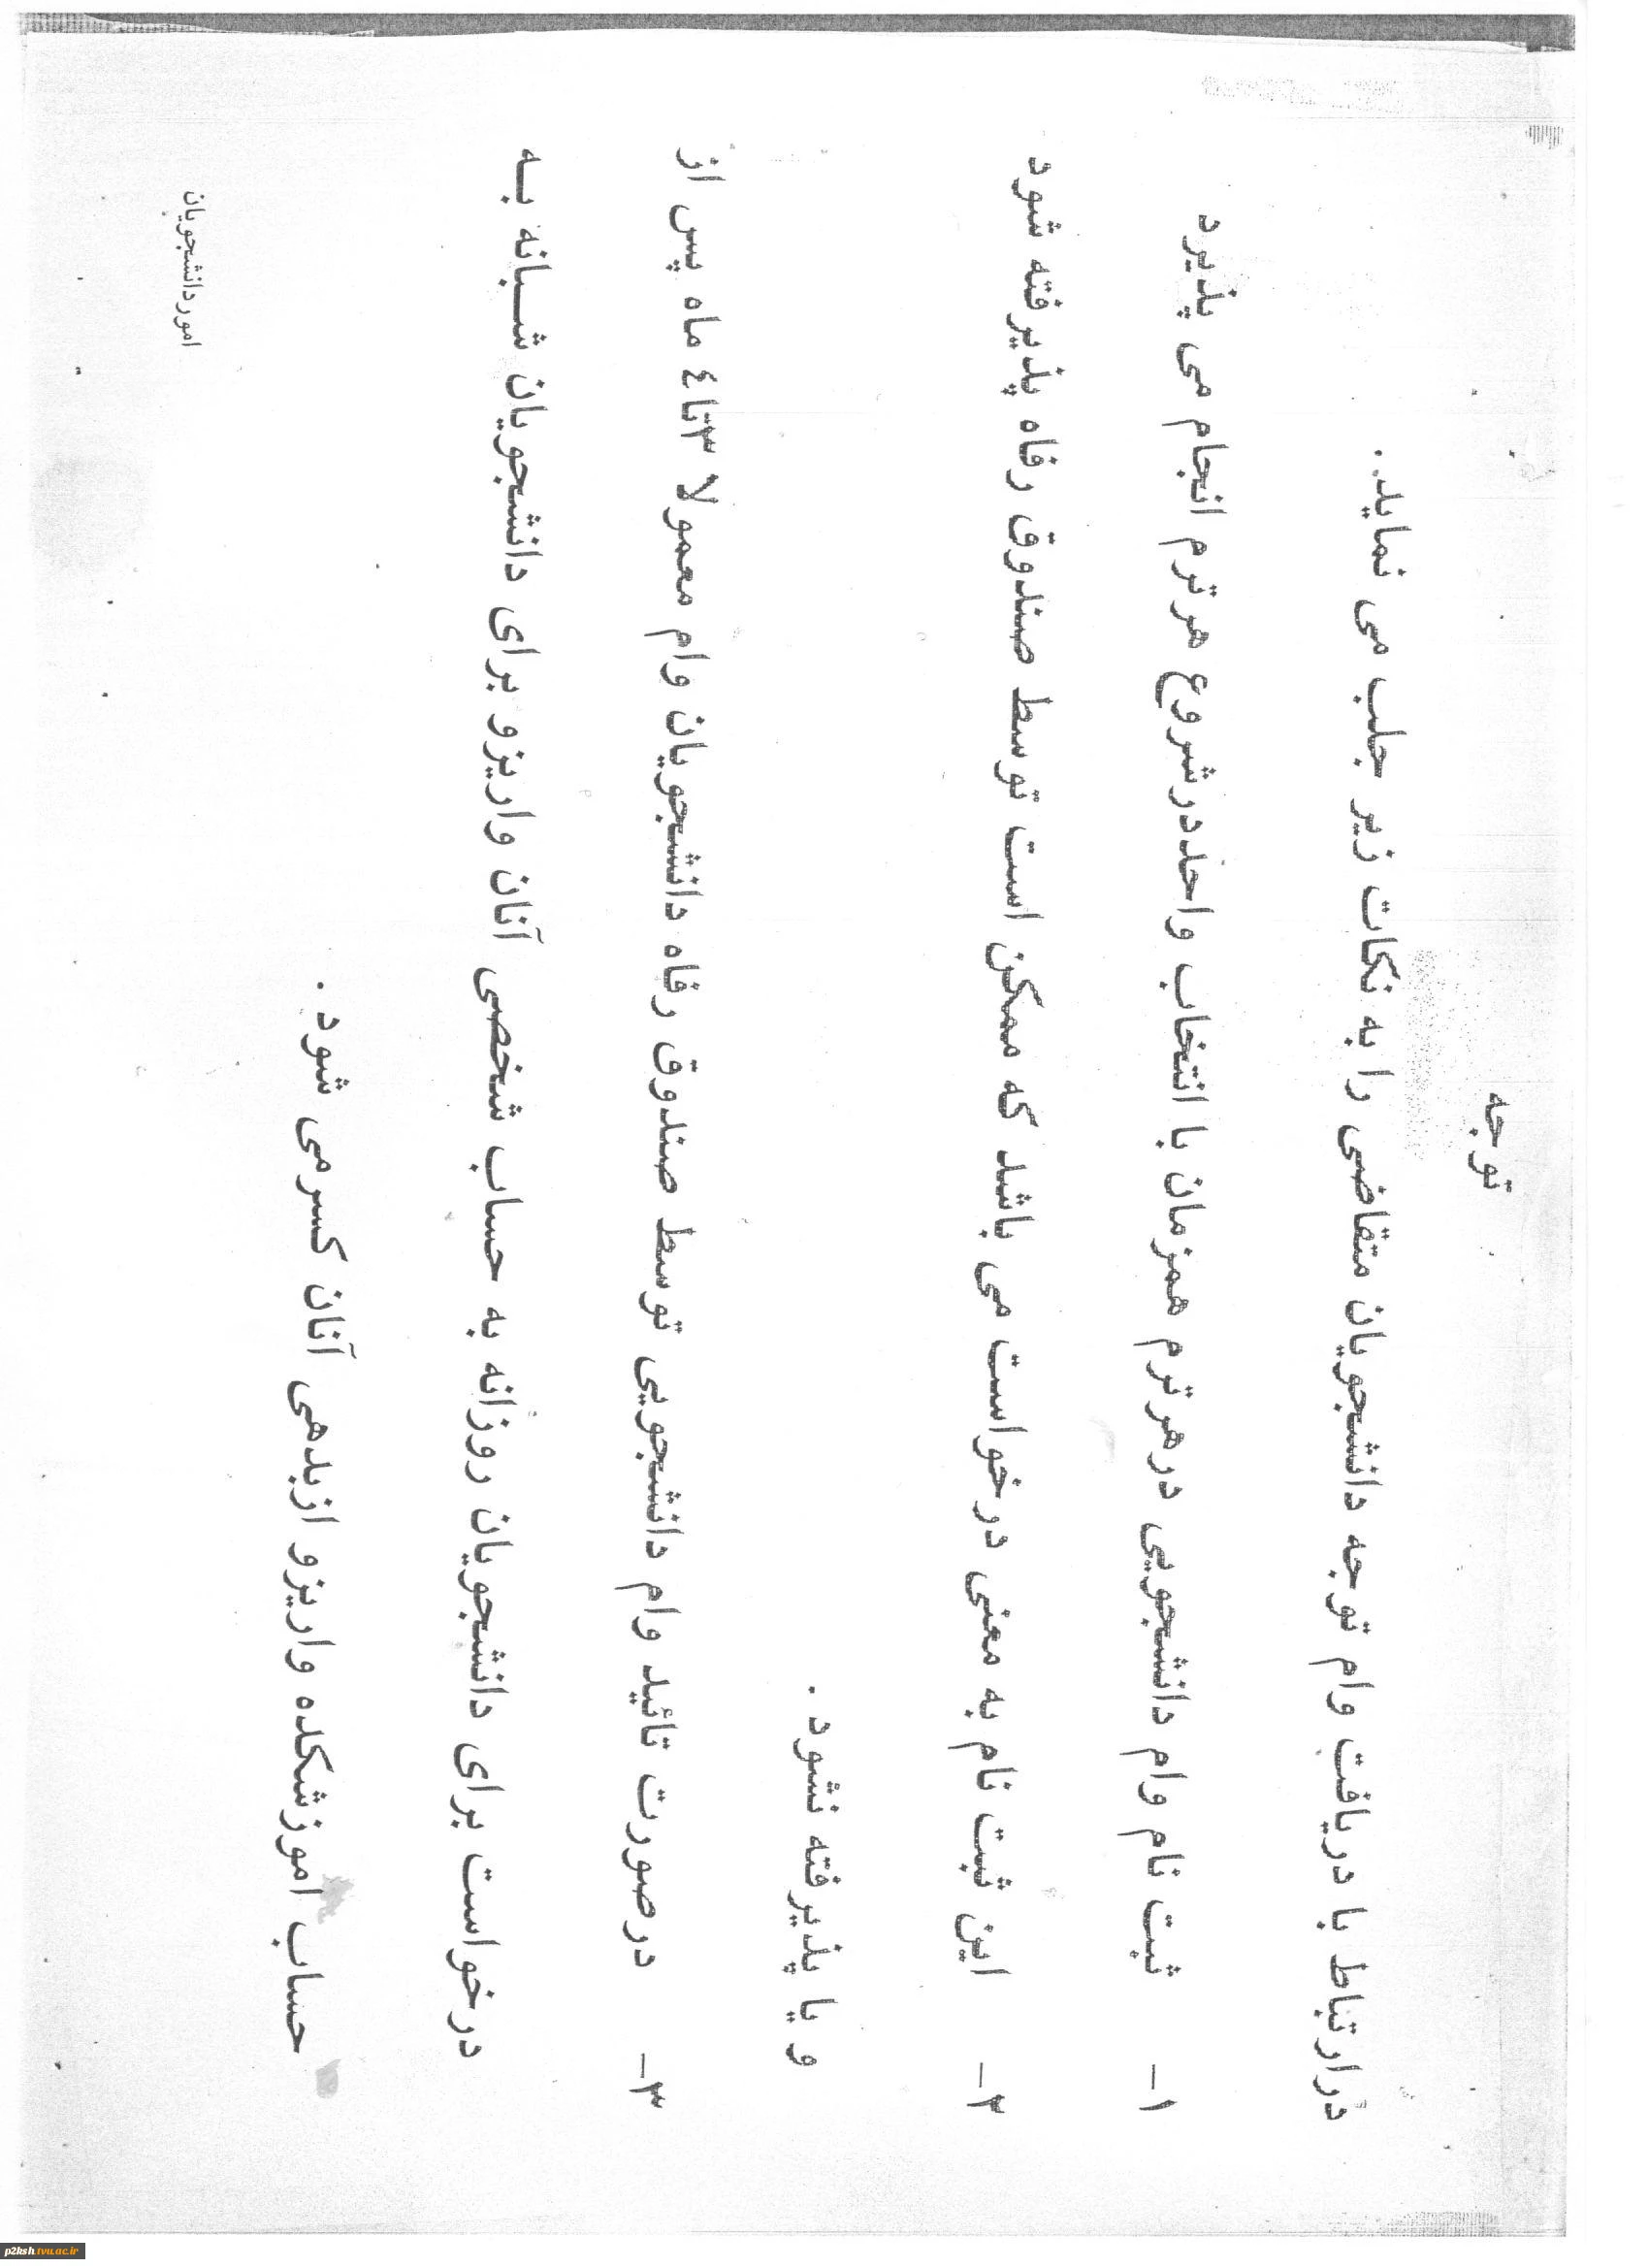 توجه
درارتباط با دریافت وام توجه دانشجویان متقاضی را به نکات زیر جلب می نماید.
۱- ثبت نام وام دانشجویی درهرترم همزمان با انتخاب واحددرشروع هرترم انجام می پذیرد
۲- این ثبت نام به معنی درخواست می باشد که ممکن است توسط صندوق رفاه پذیرفته شود
و یا پذیرفته نشود .
۳- درصورت تائید وام دانشجویی توسط صندوق رفاه دانشجویان وام معمولا ۳تا٤ ماه پس از
درخواست برای دانشجویان روزانه به حساب شخصی آنان واریزو برای دانشجویان شبانه به
حساب اموزشکده واریزو ازبدهی آنان کسرمی شود .
اموردانشجویان
p2ksh.tvu.ac.ir